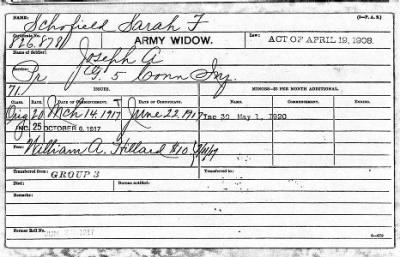 NAME: Schofield Sarah F (3-P.A.R.)
Certificate No. 826.878 ARMY WIDOW. Law: ACT OF APRIL 19, 1908.
Name of Soldier: Joseph A
Service: Pr G. 5 Conn Inf.
71. ISSUES. MINORS—$2 PER MONTH ADDITIONAL.
CLASS. RATE. DATE OF COMMENCEMENT. DATE OF CERTIFICATE. Name. Commencing. Ending.
Orig 20 Mch 14, 1917 June 22, 1917 Inc 30 May 1, 1920
INC. 25 OCTOBER 6, 1917
Fees: William A. Hillard $10
Transferred from: GROUP 3 Transferred to:
Died: Bureau notified:
Remarks:
Former Roll No. 1917